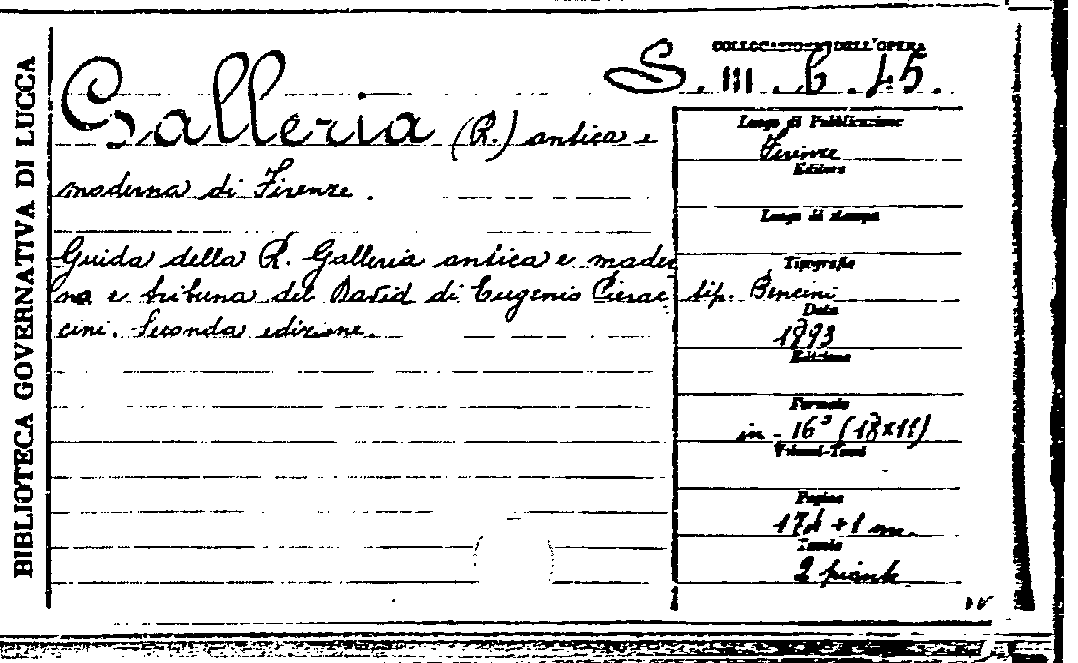 BIBLIOTECA GOVERNATIVA DI LUCCA
COLLOCAZIONE DELL'OPERA
S. III. 6. 15.
Galleria (R.) antica e
moderna di Firenze.
Guida della R. Galleria antica e moder
na e tribuna del David di Eugenio Pierac
cini. Seconda edizione.
Luogo di Pubblicazione
Firenze
Editore
Luogo di stampa
Tipografia
tip. Bencini
Data
1893
Edizione
Formato
in-16° (18x11)
Volumi-Tomi
Pagine
+1 m.
Tavole
2 piante